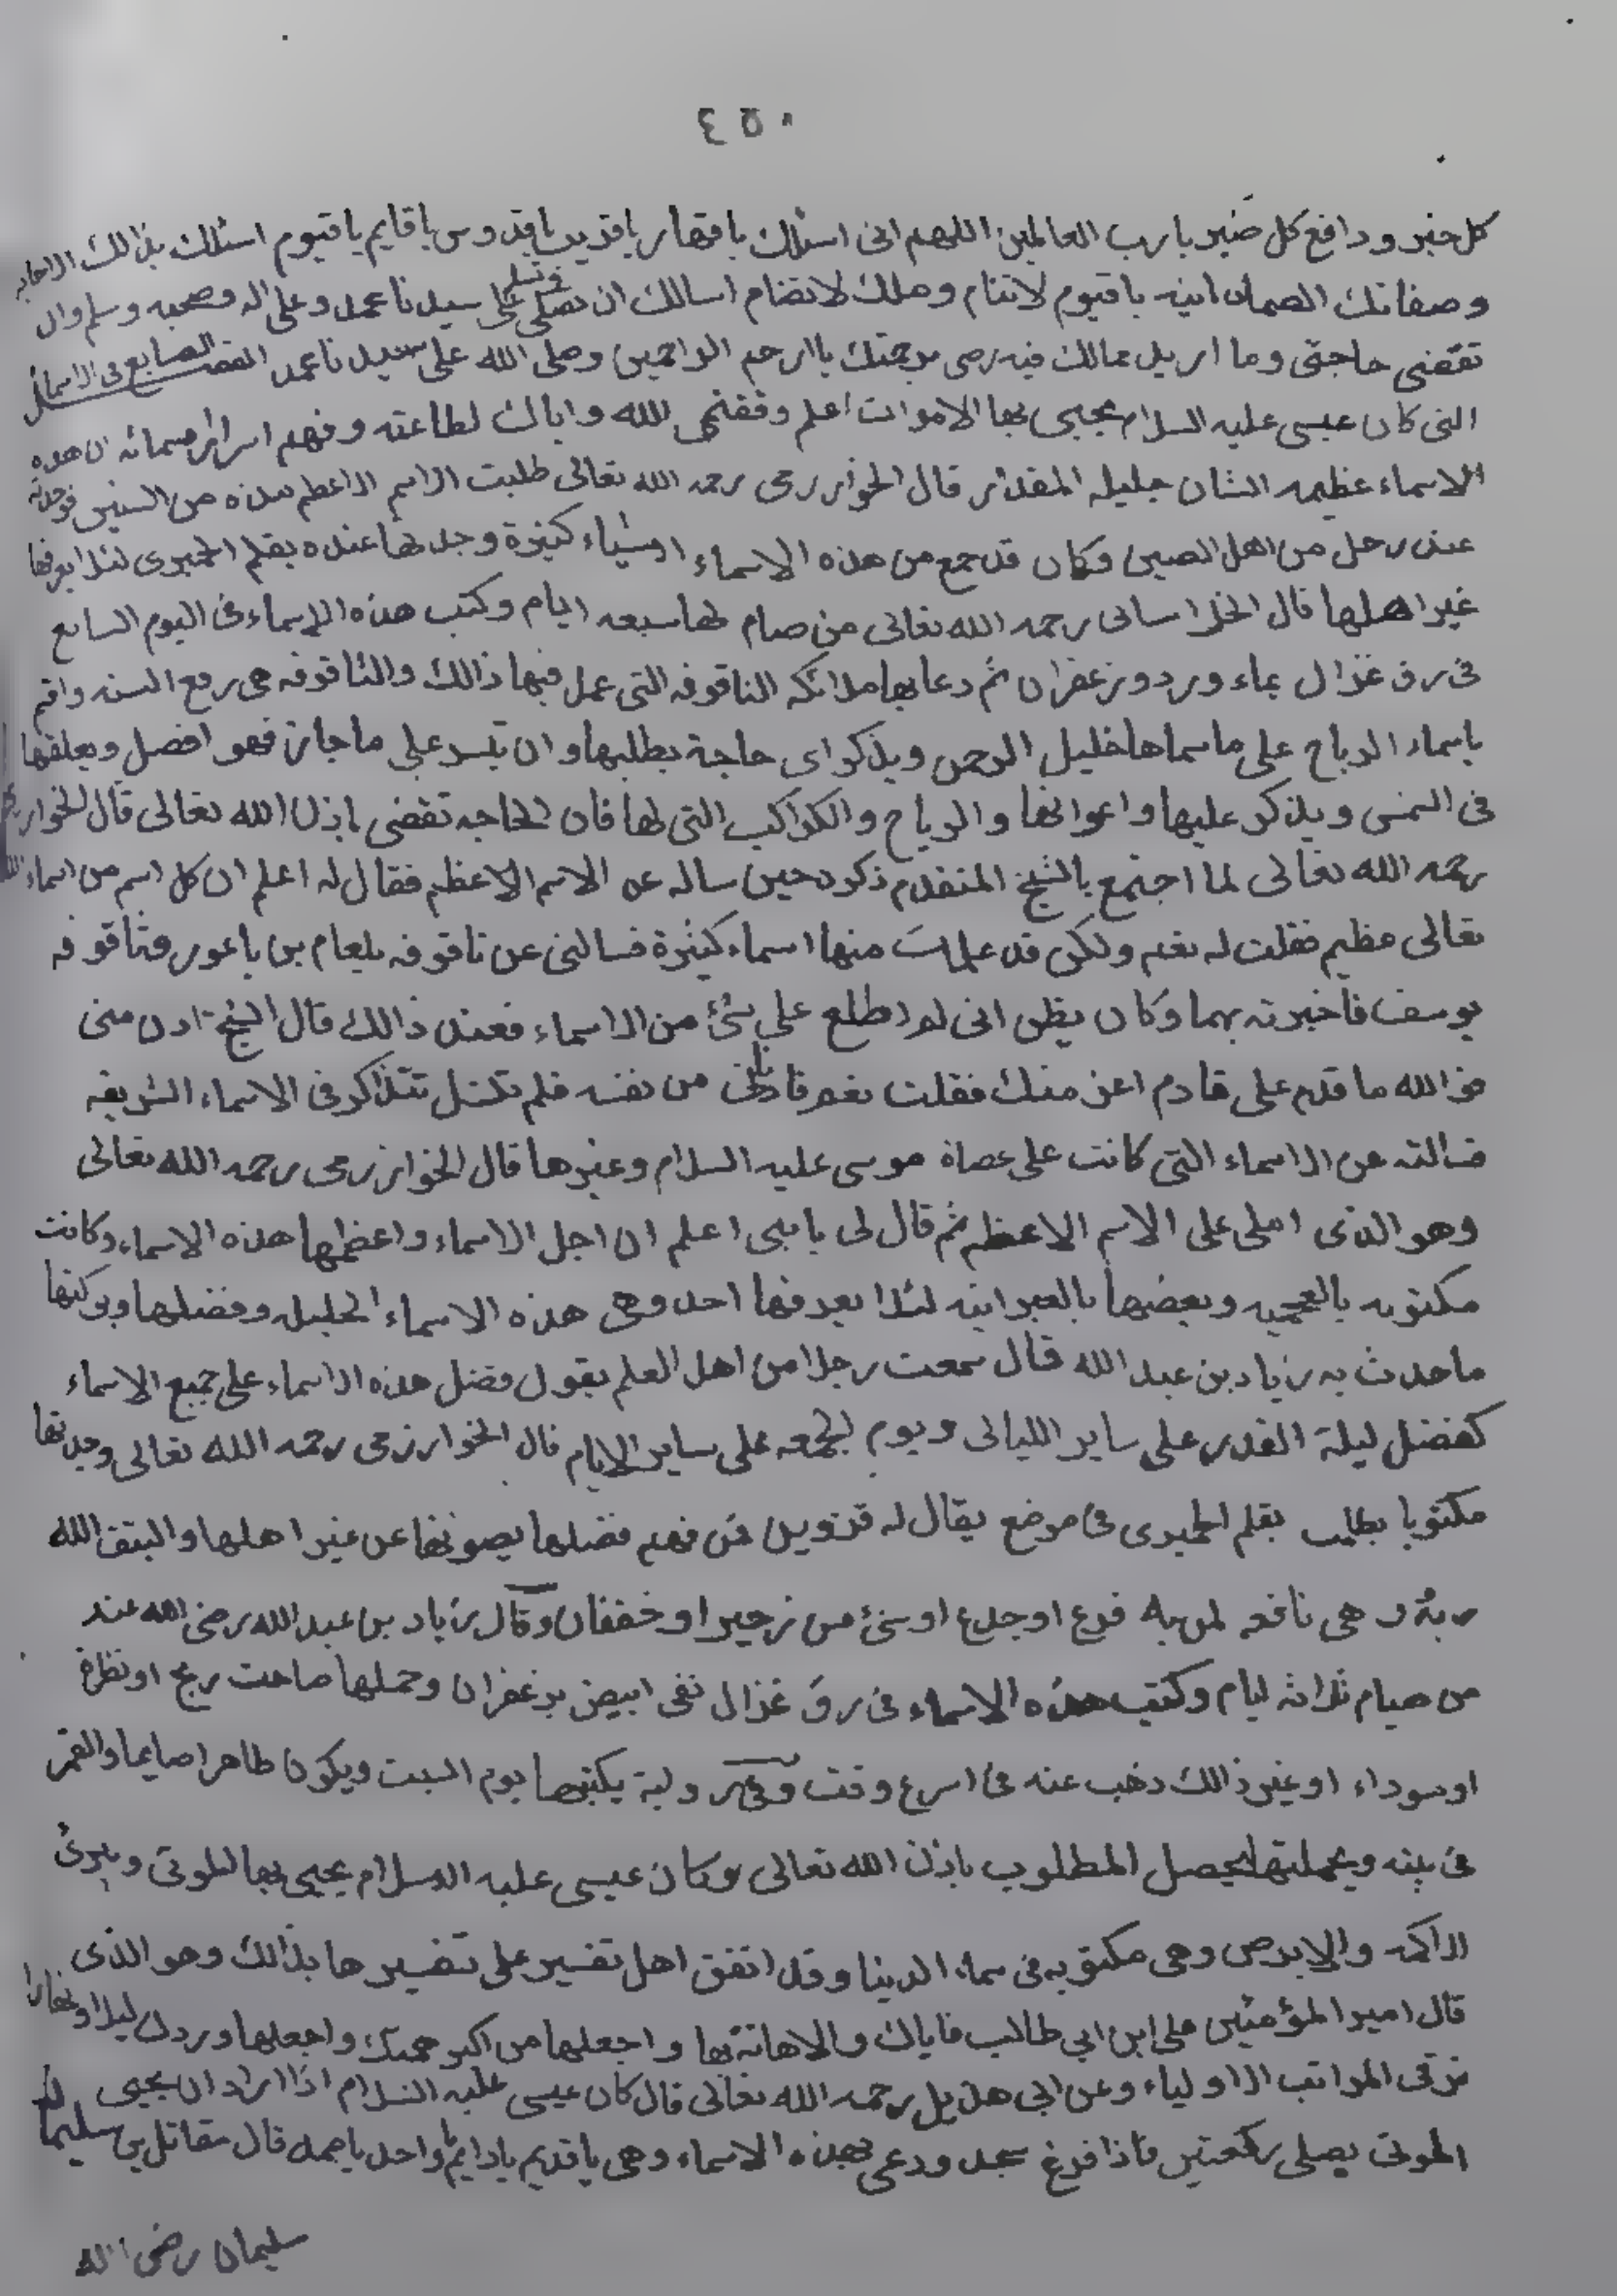 ٤٥٠
كل خير ودافع كل ضير يارب العالمين اللهم اني اسئلك ياقهار ياقريب ياقدوس ياقايم ياقيوم اسئلك بذالك الاحابه
وصفاتك الصمدانيه ياقيوم لاتنام وملك لاتضام اسالك ان تصلي وتسلم على سيدنا محمد وعلى اله وصحبه وسلم وان
تقضي حاجتي وما اريد ممالك فيه رضى برحمتك ياارحم الراحمين وصلى الله على سيدنا محمد الفصل السابع في الاسماء
التي كان عيسى عليه السلام يحيى بها الاموات اعلم وفقني الله واياك لطاعته وفهم اسرار اسمائه ان هذه
الاسماء عظيمه الشان جليله المقدار قال الخوارزمي رحمه الله تعالى طلبت الاسم الاعظم مده من السنين فوجدته
عند رجل من اهل الصين وكان قد جمع من هذه الاسماء اشياء كثيرة وجدتها عنده بقلم الحميرى لئلا يعرفها
غير اهلها قال الخراسانى رحمه الله تعالى من صام لها سبعه ايام وكتب هذه الاسماء في اليوم السابع
في رق غزال بماء ورد وزعفران ثم دعا بها ملائكه الناقوفه التي عمل فيها ذالك والثاقوفه هي ربع السنه واقم
باسماء الرياح على ماسماها خليل الرحمن ويذكر اي حاجة يطلبها وان يسر على ماجاز فهو افضل ويعلقها
في الشمس ويذكر عليها واعوانها والرياح والكواكب التي لها فان الحاجه تقضى باذن الله تعالى قال الخوارزمى
رحمه الله تعالى لما اجتمع بالشيخ المتقدم ذكره حين ساله عن الاسم الاعظم فقال له اعلم ان كل اسم من اسماء الله
تعالى عظيم فقلت له نعم ولكن قد علمت منها اسماء كثيرة فسالني عن ثاقوفه بلعام بن باعور وثاقوفه
يوسف فاخبرته بهما وكان يظن اني لم اطلع على شئ من الاسماء فعند ذالك قال الشيخ ادن منى
فوالله ماقدم على قادم اعز منك فقلت نعم فادناني من نفسه فلم نزل نتذاكر في الاسماء الشريفه
فسالته عن الاسماء التي كانت على عصاة موسى عليه السلام وغيرها قال الخوارزمى رحمه الله تعالى
وهو الذى املى على الاسم الاعظم ثم قال لى يابني اعلم ان اجل الاسماء واعظمها هذه الاسماء وكانت
مكتوبه بالعجميه وبعضها بالعبرانيه لئلا يعرفها احد وهي هذه الاسماء الجليله وفضلها وبركتها
ماحدث به زياد بن عبد الله قال سمعت رجلا من اهل العلم يقول فضل هذه الاسماء على جميع الاسماء
كفضل ليلة القدر على ساير الليالى ويوم الجمعه على ساير الايام قال الخوارزمى رحمه الله تعالى وجدتها
مكتوبا بقلم الحميرى في موضع يقال له قزوين فمن فهم فضلها يصونها عن غير اهلها واليتق الله
ربه وهي نافعه لمن به فزع اوجزع اوشئ من زحير اوخفقان وقال زياد بن عبد الله رضي الله عنه
من صيام ثلاثه ايام وكتب هذه الاسماء في رق غزال نقى ابيض بزعفران وحملها صاحب ريح اونظرة
اوسوداء اوغير ذالك ذهب عنه في اسرع وقت يكتبها يوم السبت ويكون طاهرا صايما والقمر
في بيته ويحملها يحصل المطلوب باذن الله تعالى وكان عيسى عليه السلام يحيى بها الموتى ويبرئ
الاكمه والابرص وهي مكتوبه في سماء الدنيا وقد اتفق اهل تفسير على تفسيرها بذالك وهو الذى
قال امير المؤمنين على ابن ابي طالب فاياك والاهانة بها واجعلها من اكبر همتك واجعلها وردك ليلا ونهارا
ترقى المراتب الاولياء وعن ابي هذيل رحمه الله تعالى قال كان عيسى عليه السلام اذا اراد ان يحيى
الموتى يصلى ركعتين فاذا فرغ سجد ودعى بهذه الاسماء وهي ياقديم يادايم ياواحد ياصمد قال مقاتل بن سليمان
سليمان رضي الله